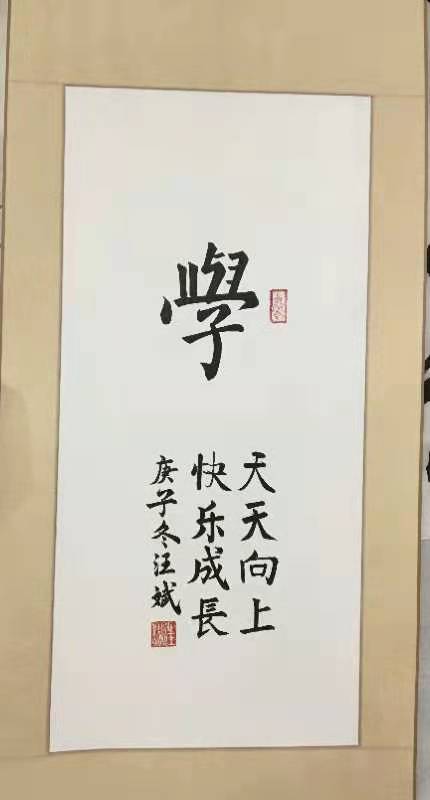 學
天天向上
快乐成長
庚子冬汪斌